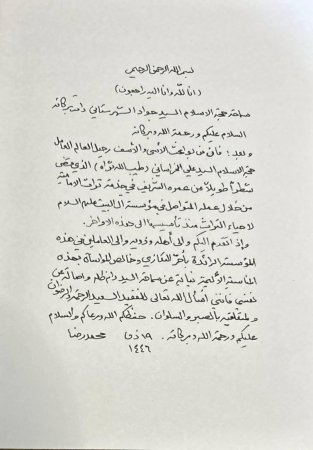 بسم الله الرحمن الرحيم
(انا لله وانا اليه راجعون)
سماحة حجة الاسلام السيد جواد الشهرستاني دامت بركاته
السلام عليكم ورحمة الله وبركاته
وبعد؛ فان من بواعث الاسى والاسف رحيل العالم العامل
حجة الاسلام السيد علي الخراساني (طيب الله ثراه) الذي مضى
شطراً طويلاً من عمره الشريف في خدمة تراث الامامية
من خلال عمله المتواصل في مؤسسة آل البيت عليهم السلام
لاحياء التراث منذ تأسيسها الى هذه الاواخر.
وإذ اتقدم اليكم والى أهله وذويه والى العاملين في هذه
المؤسسة الرائدة بأحر التعازي وخالص المواساة بهذه
المناسبة الأليمة نيابة عن سماحة السيد دام ظله واصالة عن
نفسي فانني اسأل الله تعالى للفقيد السعيد الرحمة والرضوان
ولمتعلقيه بالصبر والسلوان. حفظكم الله ورعاكم والسلام
عليكم ورحمة الله وبركاته. ١٩ ذق محمد رضا
١٤٤٦